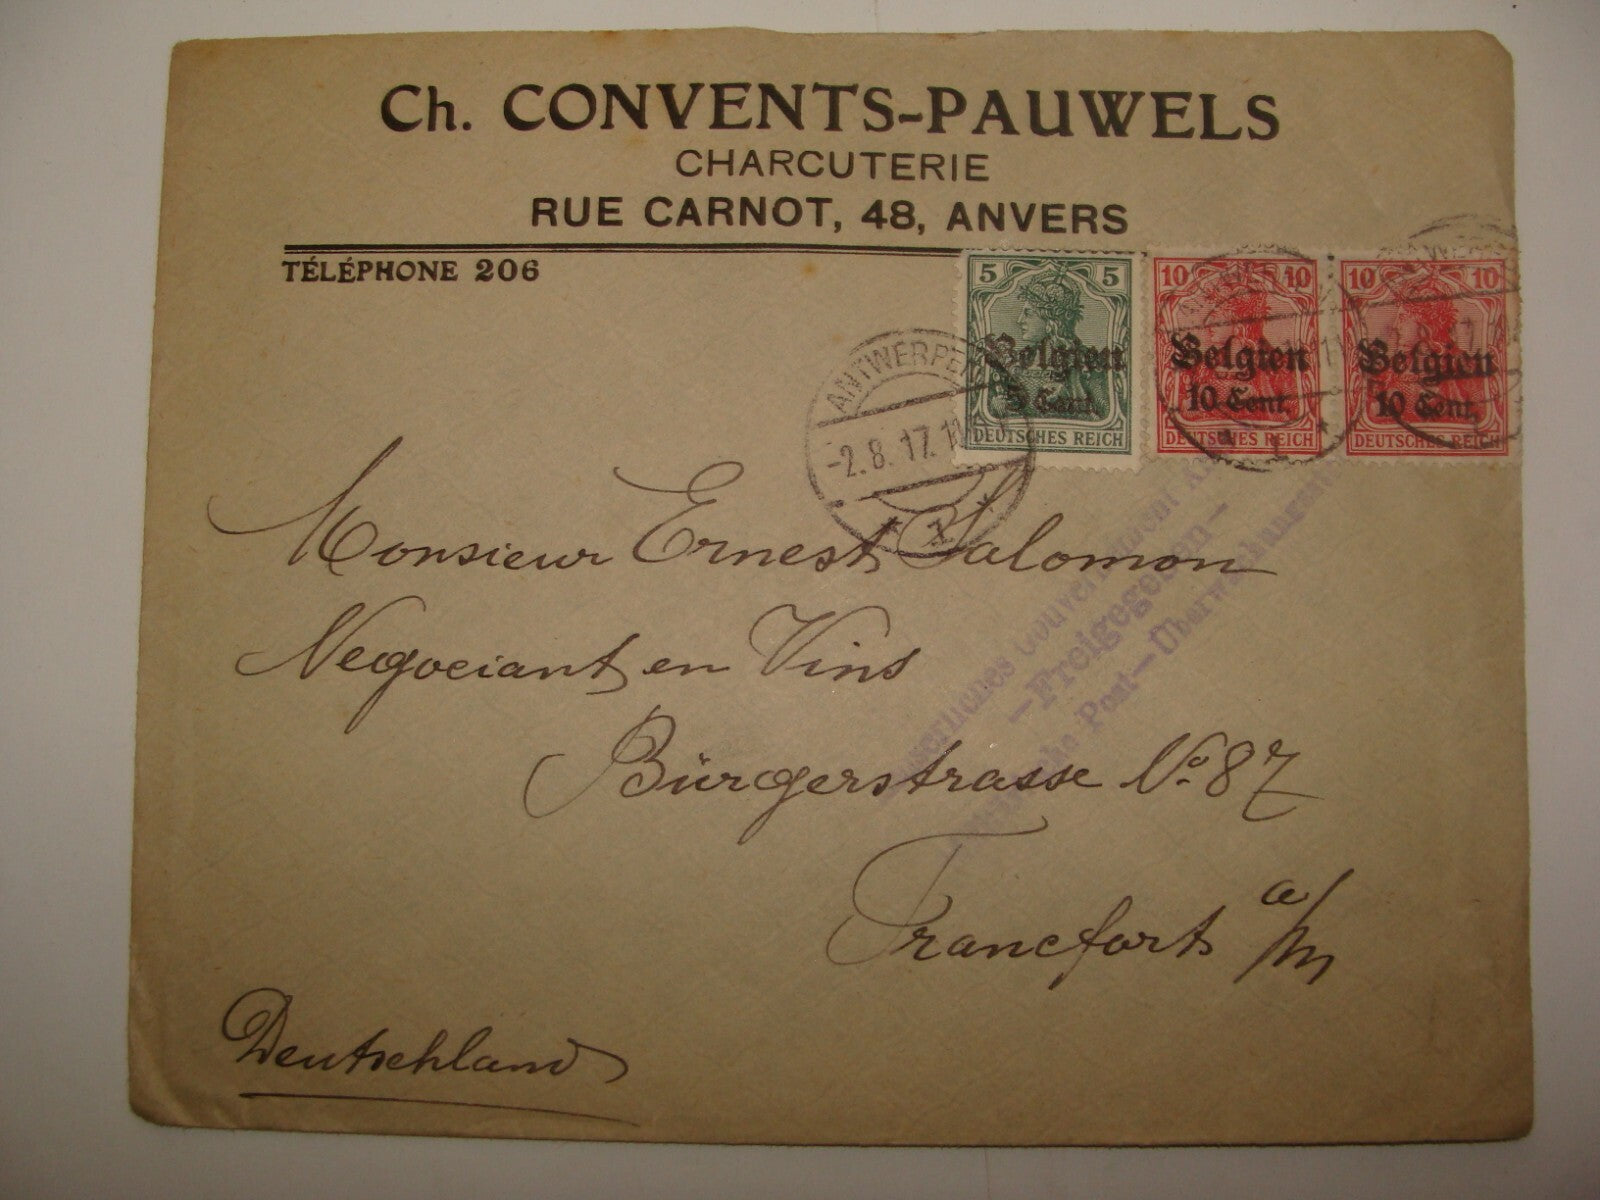 Ch. CONVENTS-PAUWELS
CHARCUTERIE
RUE CARNOT, 48, ANVERS
TÉLÉPHONE 206
5 5
Belgien
5 Cent.
DEUTSCHES REICH
10 10
Belgien
10 Cent.
DEUTSCHES REICH
10 10
Belgien
10 Cent.
DEUTSCHES REICH
ANTWERPEN
-2.8.17. 11
* 1 *
Monsieur Ernest Salomon
Negociant en Vins
Bürgerstrasse No. 87
Francfort a/m
Deutschland
Gouvernement
-Freigegeben-
Post-Überwachungsstelle